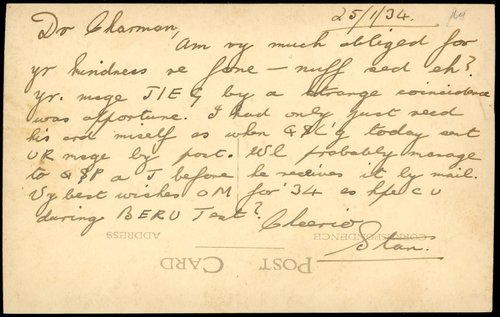 25/1/34.
Dr Charman,
Am vy much obliged for
yr kindness re fone — nuff sed eh?
Yr. msge J1EG by a strange coincidence
was opportune. I had only just recd
his crd miself es when QSL'g today sent
UR msge by post. Wl probably manage
to QSP a J before he receives it by mail.
Vy best wishes OM for '34 es hpe C U
during BERU Test?
Cheerio
Stan.
CORRESPONDENCE
ADDRESS
POST CARD